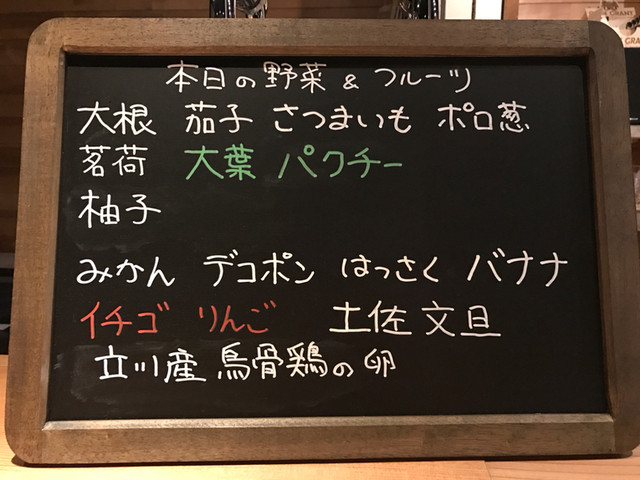 本日の野菜 & フルーツ
大根 茄子 さつまいも ポロ葱
茗荷 大葉 パクチー
柚子
みかん デコポン はっさく バナナ
イチゴ りんご 土佐文旦
立川産 烏骨鶏の卵